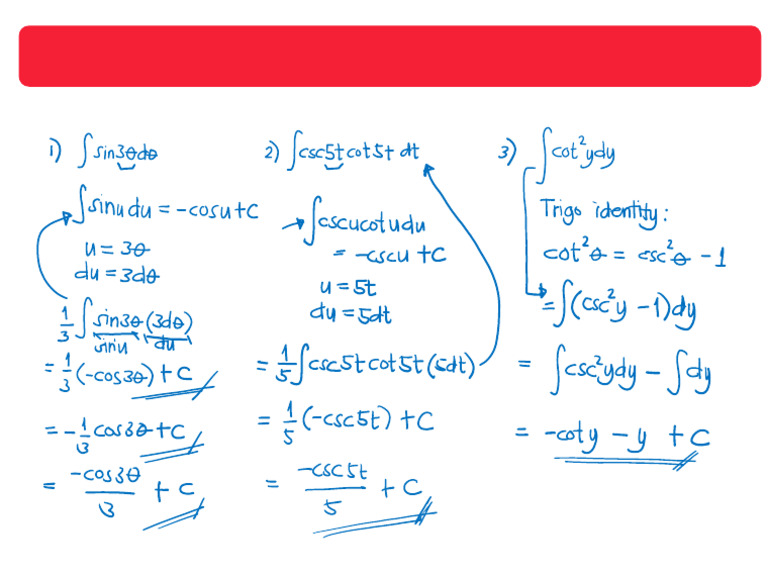 1) ∫sin3θdθ
∫sinu du = -cosu+C
u = 3θ
du = 3dθ
1/3 ∫sin3θ(3dθ)
sinu du
= 1/3(-cos3θ)+C
= -1/3 cos3θ+C
= -cos3θ/3 + C
2) ∫csc5tcot5t dt
∫cscucotudu
= -cscu +C
u = 5t
du = 5dt
= 1/5∫csc5tcot5t(5dt)
= 1/5(-csc5t)+C
= -csc5t/5 + C
3) ∫cot²ydy
Trigo identity:
cot²θ = csc²θ - 1
=∫(csc²y -1)dy
= ∫csc²ydy - ∫dy
= -coty - y + C